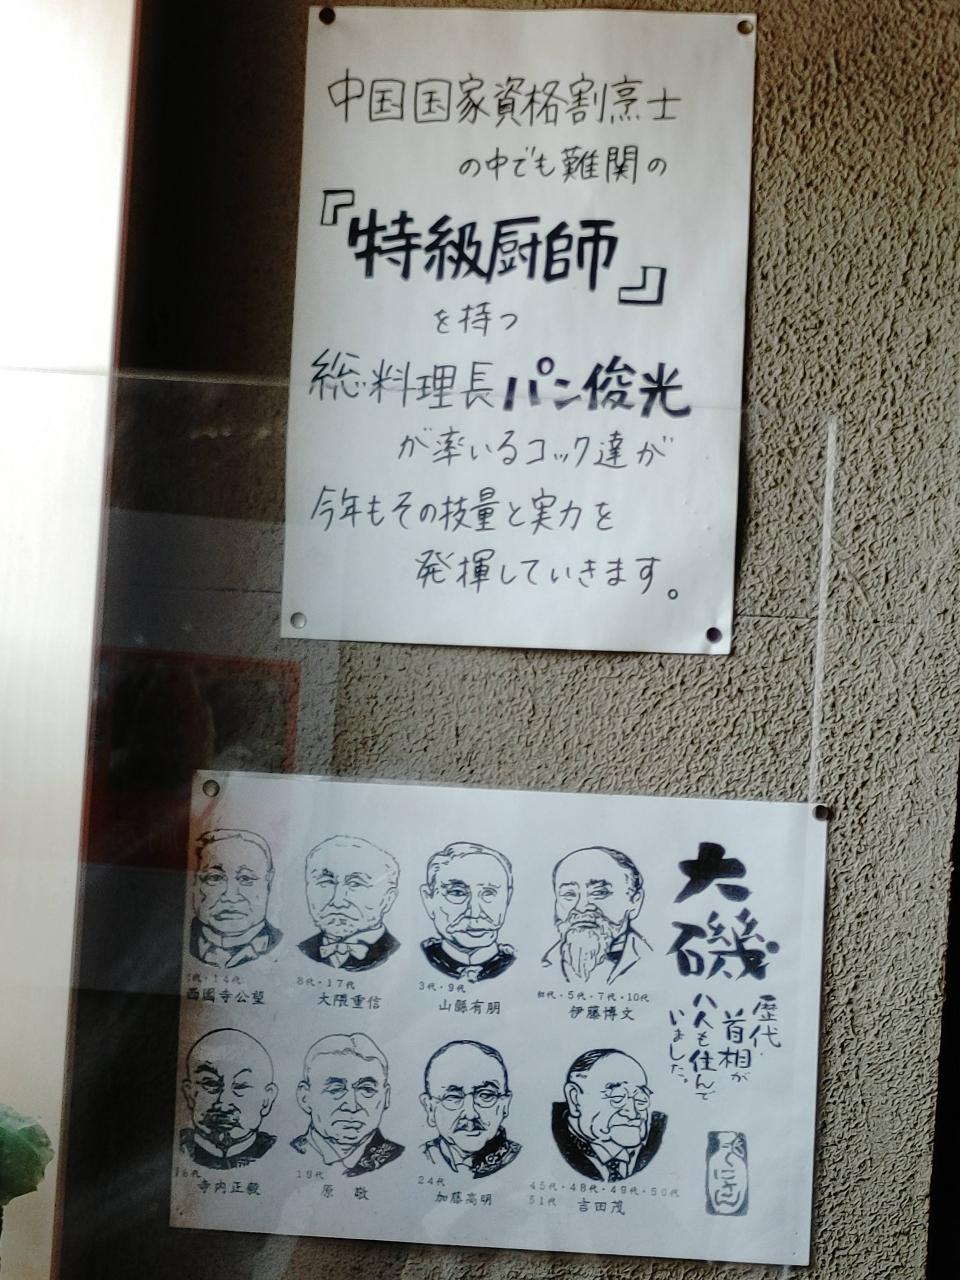 中国国家資格割烹士
の中でも難関の
『特級厨師』
を持つ
総料理長パン俊光
が率いるコック達が
今年もその技量と実力を
発揮していきます。
大磯
歴代
首相が
八人も住んで
いました。
初代・5代・7代・10代
伊藤博文
3代・9代
山縣有朋
8代・17代
大隈重信
代・14代
西園寺公望
45代・48代・49代・50代
51代
吉田茂
24代
加藤高明
19代
原 敬
18代
寺内正毅